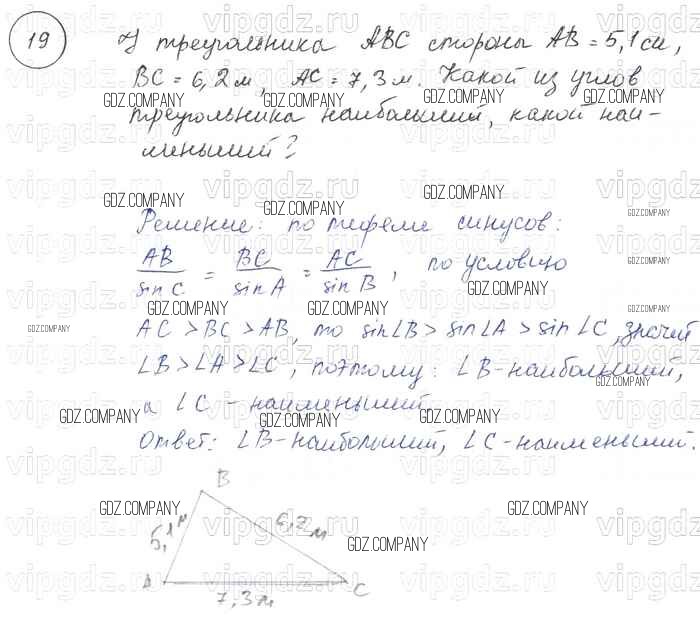 19
У треугольника ABC стороны AB = 5,1 см,
BC = 6,2 м, AC = 7,3 м. Какой из углов
треугольника наибольший, какой наи-
меньший?
Решение: по теореме синусов:
AB/sin C = BC/sin A = AC/sin B, по условию
AC > BC > AB, то sin∠B > sin∠A > sin∠C, значит
∠B > ∠A > ∠C, поэтому: ∠B - наибольший,
а ∠C - наименьший
Ответ: ∠B - наибольший, ∠C - наименьший.
B
5,1 м
6,2 м
A
C
7,3 м
vipgdz.ru
GDZ.COMPANY